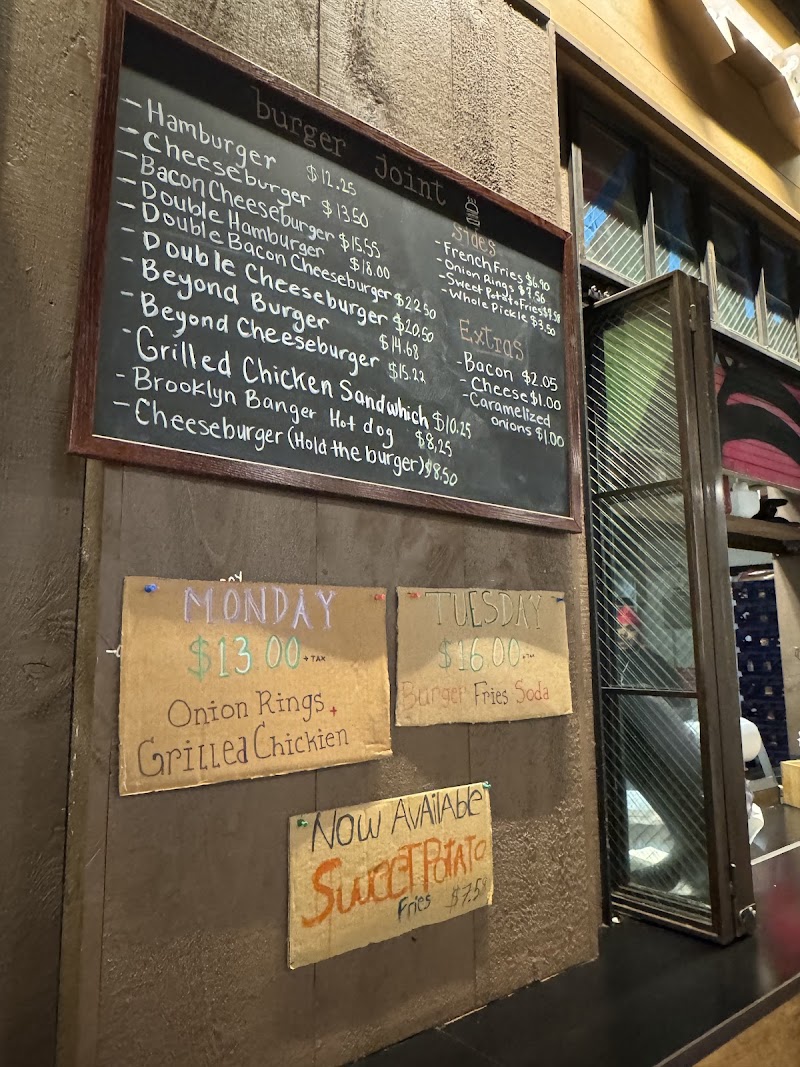 burger joint
-Hamburger $12.25
-Cheeseburger $13.50
-Bacon Cheeseburger $15.55
-Double Hamburger $18.00
-Double Bacon Cheeseburger $22.50
-Double Cheeseburger $20.50
-Beyond Burger $14.68
-Beyond Cheeseburger $15.22
-Grilled Chicken Sandwhich $10.25
-Brooklyn Banger Hot dog $8.25
-Cheeseburger (Hold the burger) $8.50
Sides
-French Fries $6.90
-Onion Rings $7.56
-Sweet Potato Fries $7.58
-Whole Pickle $3.50
Extras
-Bacon $2.05
-Cheese $1.00
-Caramelized
onions $1.00
MONDAY
$13.00 + TAX
Onion Rings +
Grilled Chickien
TUESDAY
$16.00 + Tax
Burger Fries Soda
Now Available
Sweet Potato
Fries $7.58